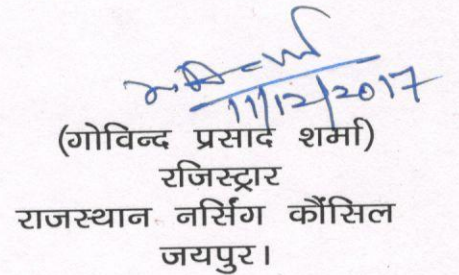 11/12/2017
(गोविन्द प्रसाद शर्मा)
रजिस्ट्रार
राजस्थान नर्सिंग कौंसिल
जयपुर।